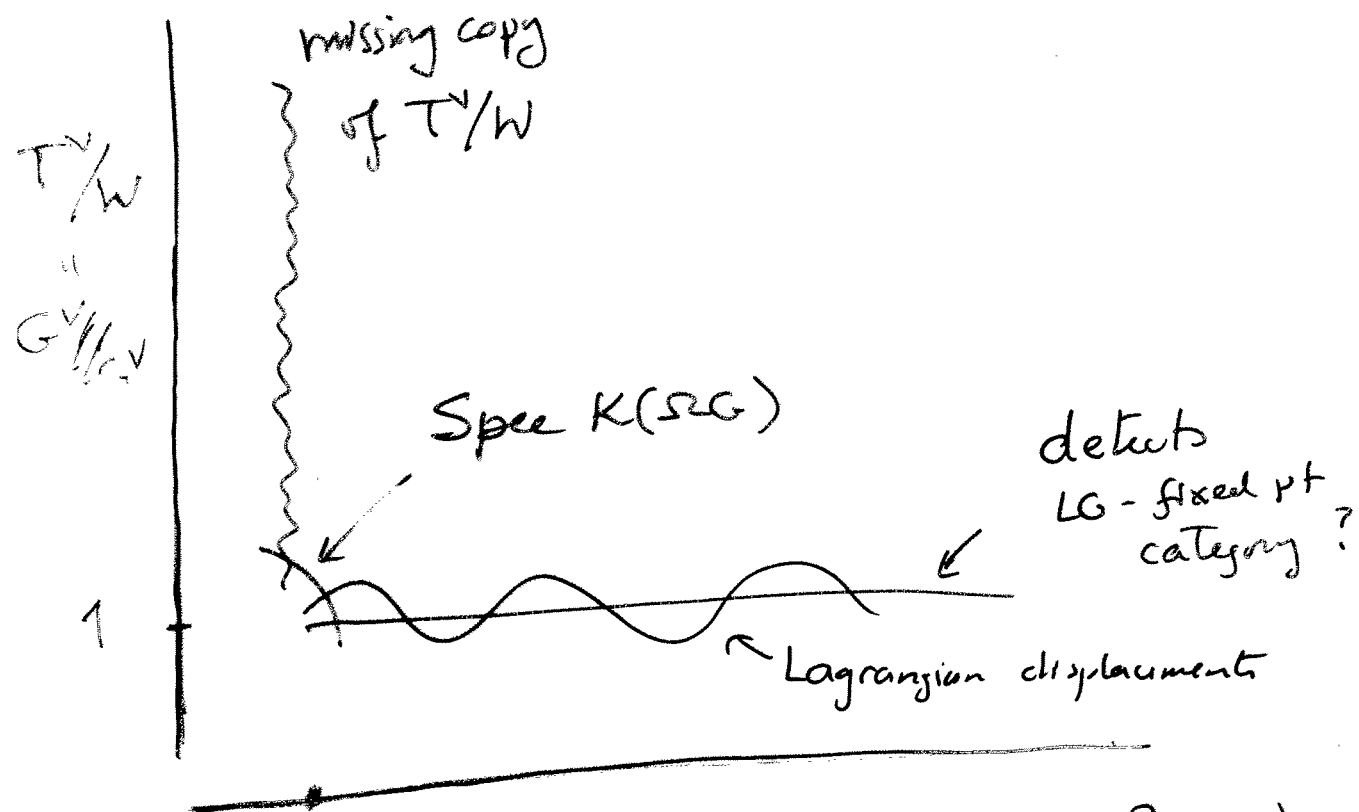 missing copy
of T^∨/W
T^∨/W
"
G^∨//G^∨
Spec K(ΩG)
detects
LG - fixed pt
category ?
1
Lagrangian displacements